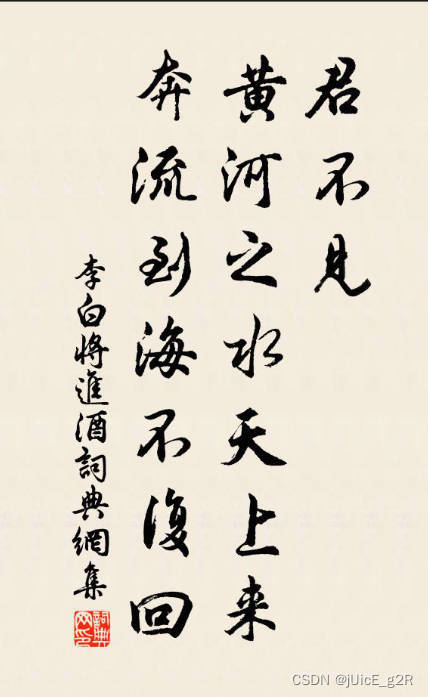 君不見
黃河之水天上来
奔流到海不復回
李白將進酒詞典網集
詞典網印
CSDN @jUicE_g2R